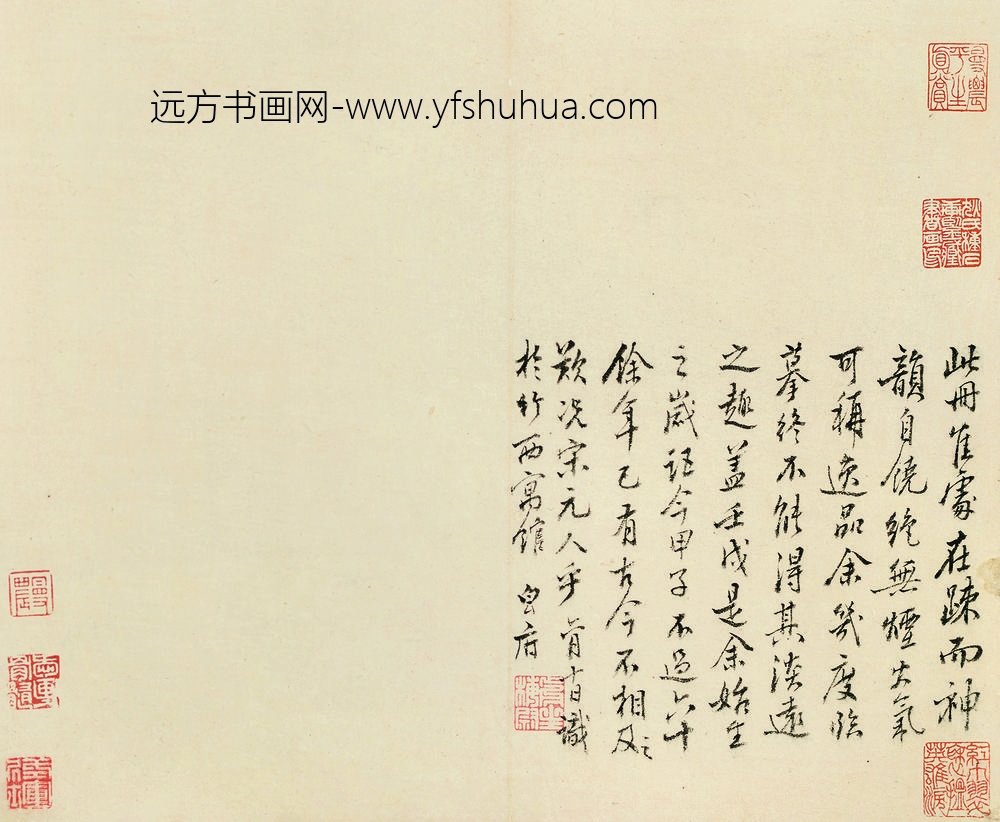 远方书画网-www.yfshuhua.com
此冊佳處在踈而神
韻自饒絶無煙火氣
可稱逸品余幾度臨
摹終不能得其淡遠
之趣盖壬戌是余始生
之歲距今甲子不過六十
餘年已有古今不相及之
歎况宋元人乎
識
於竹西寓館
真賞